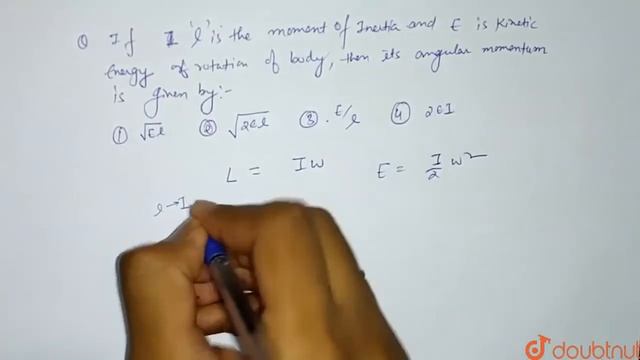 Q If I 'l' is the moment of Inertia and E is Kinetic
Energy of rotation of body, then its angular momentum
is given by:-
① √El ② √2El ③ E/l ④ 2EI
L = Iω E = I/2 ω²
l→I
doubtnut